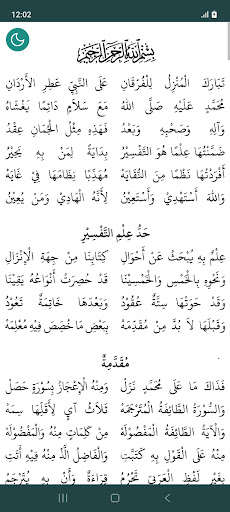 12:02
بِسْمِ اللهِ الرَّحْمٰنِ الرَّحِيْمِ
تَبَارَكَ الْمُنْزِلُ لِلْفُرْقَانِ عَلَى النَّبِيِّ عَطِرِ الْأَرْدَانِ
مُحَمَّدٍ عَلَيْهِ صَلَّى اللهُ مَعَ سَلَامٍ دَائِمًا يَغْشَاهُ
وَآلِهِ وَصَحْبِهِ وَبَعْدُ فَهٰذِهِ مِثْلُ الْجُمَانِ عِقْدُ
ضَمَّنْتُهَا عِلْمًا هُوَ التَّفْسِيْرُ بِدَايَةً لِمَنْ بِهِ يَحِيْرُ
أَفْرَدْتُهَا نَظْمًا مِنَ النُّقَايَهْ مُهَذِّبًا نِظَامَهَا فِي غَايَهْ
وَاللهَ أَسْتَهْدِيْ وَأَسْتَعِيْنُ لِأَنَّهُ الْهَادِيْ وَمَنْ يُعِيْنُ
حَدُّ عِلْمِ التَّفْسِيْرِ
عِلْمٌ بِهِ يُبْحَثُ عَنْ أَحْوَالِ كِتَابِنَا مِنْ جِهَةِ الْإِنْزَالِ
وَنَحْوِهِ بِالْخَمْسِ وَالْخَمْسِيْنَا قَدْ حُصِرَتْ أَنْوَاعُهُ يَقِيْنَا
وَقَدْ حَوَتْهَا سِتَّةٌ عُقُوْدُ وَبَعْدَهَا خَاتِمَةٌ تَعُوْدُ
وَقَبْلَهَا لَا بُدَّ مِنْ مُقَدِّمَهْ بِبَعْضِ مَا خُصِّصَ فِيْهِ مُعْلِمَهْ
مُقَدِّمَةٌ
فَذَاكَ مَا عَلَى مُحَمَّدٍ نَزَلْ وَمِنْهُ الْإِعْجَازُ بِسُوْرَةٍ حَصَلْ
وَالسُّوْرَةُ الطَّائِفَةُ الْمُتَرْجَمَهْ ثَلَاثُ آيٍ لِأَقَلِّهَا سِمَهْ
وَالْآيَةُ الطَّائِفَةُ الْمَفْصُوْلَهْ مِنْ كَلِمَاتٍ مِنْهُ وَالْمَفْضُوْلَهْ
مِنْهُ عَلَى الْقَوْلِ بِهِ كَتَبَّتِ وَالْفَاضِلُ الَّذْ مِنْهُ فِيْهِ أَتَتِ
بِغَيْرِ لَفْظِ الْعَرَبِيِّ تَحْرُمُ قِرَاءَةٌ وَأَنْ بِهِ يُتَرْجَمُ